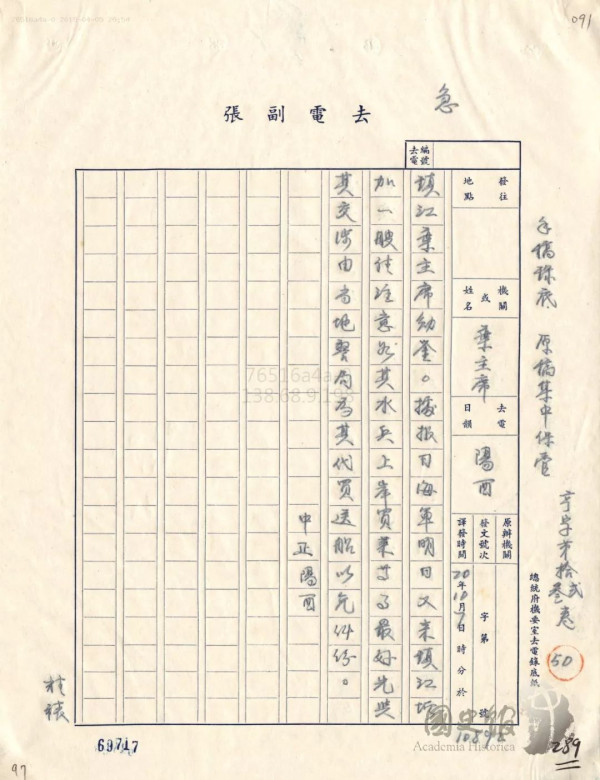 091
急
去電副張
去電編號
發往地點
機關或姓名 葉主席
去電日韻 陽酉
原辦機關
發文號次 字第 號
譯發時間 20年10月7日 時 分於
10898
手稿錄底 原稿集中保管
亨字第拾貳叁卷
50
總統府機要室去電錄底紙
鎮江葉主席勛鑒。據報日海軍明日又來鎮江増
加一艘佳注意如其水兵上岸買菜等事最好先與
其交涉由當地警局為其代買送船以免件份。
中正陽酉
桂
69717
國史館
Academia Historica
289
97
76516a4a
138.68.9.198